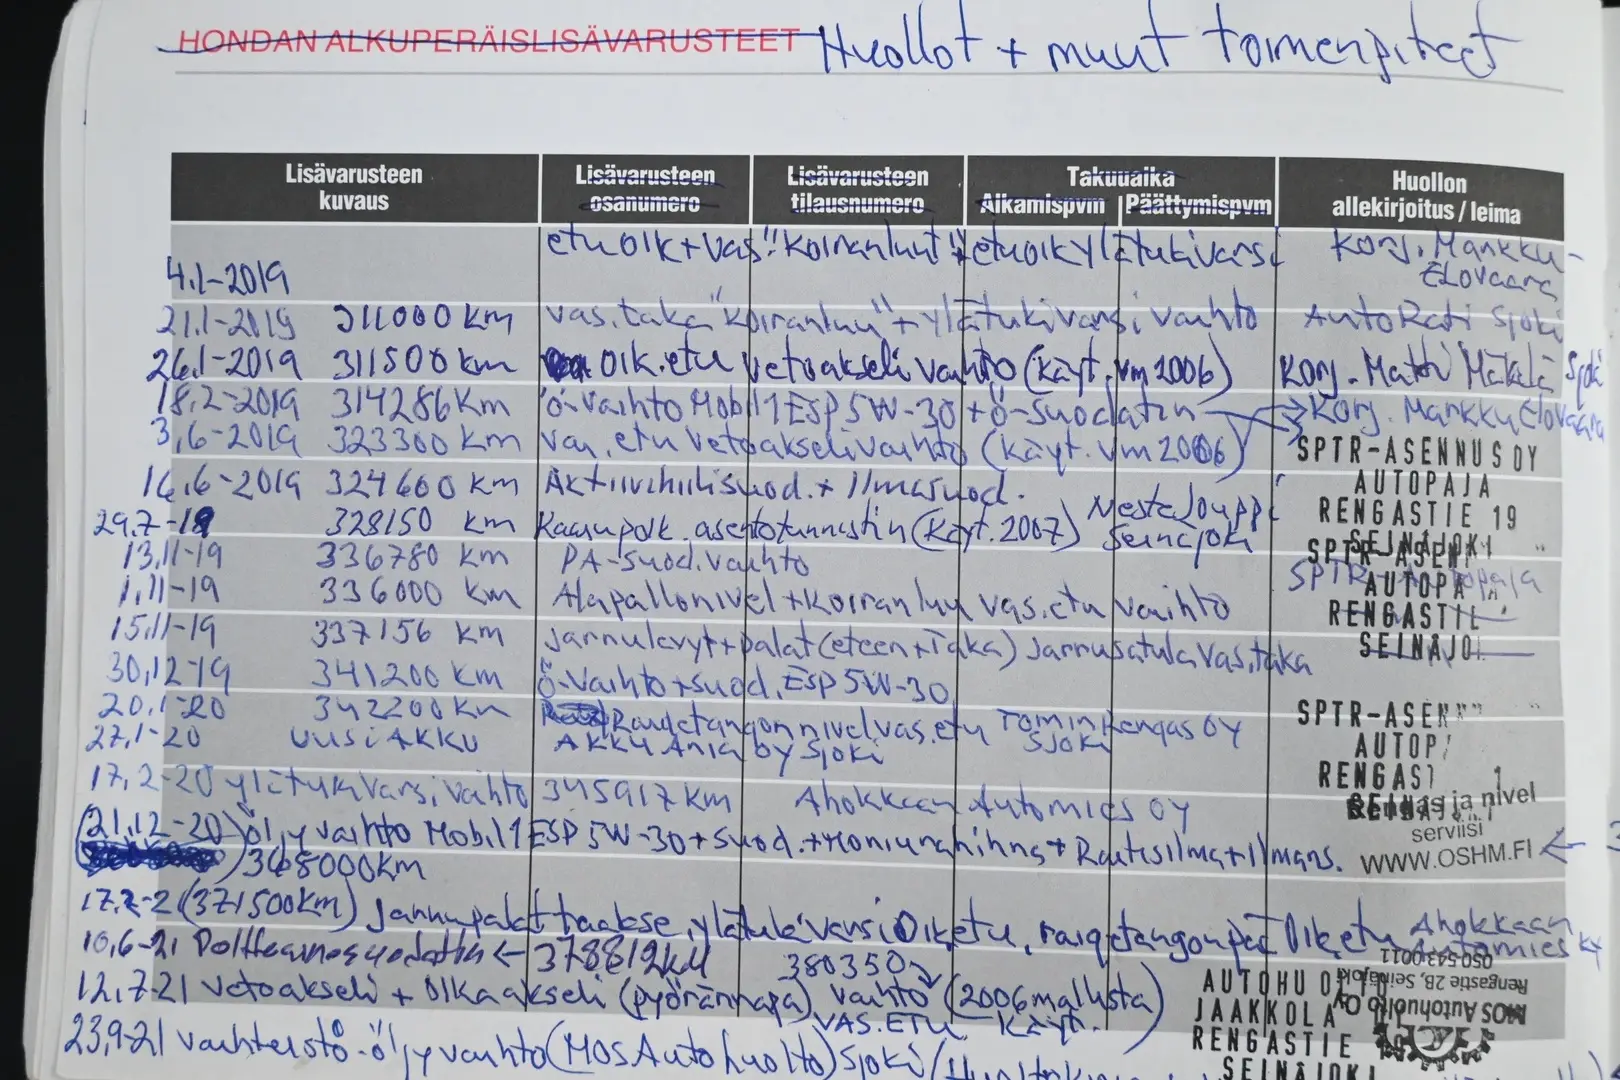 HONDAN ALKUPERÄISLISÄVARUSTEET Huollot + muut toimenpiteet
Lisävarusteen kuvaus Lisävarusteen osanumero Lisävarusteen tilausnumero Takuuaika Alkamispvm Päättymispvm Huollon allekirjoitus / leima
4.1-2019 etu oik + vas "koiranluut" + etu oik ylätukivarsi Korj. Markku Elovaara
21.1-2019 311000 km vas. taka "koiranluu" + ylätukivarsi vaihto AutoRati Sjoki
26.1-2019 311500 km oik. etu vetoakseli vaihto (käyt. vm 2006) Korj. Matti Mäkelä Sjoki
18.2-2019 314286 km ö-vaihto Mobil 1 ESP 5W-30 + ö-suodatin Korj. Markku Elovaara
3.6-2019 323300 km vas. etu vetoakseli vaihto (käyt. vm 2006) SPTR-ASENNUS OY
16.6-2019 324600 km Aktiivihiilisuod. + ilmasuod. AUTOPAJA
29.7-19 328150 km Kaasupolk. asentotunnistin (käyt. 2007) Mesta Jouppi Seinäjoki RENGASTIE 19
SEINÄJOKI
13.11-19 336780 km PA-suod. vaihto SPTR-Autopaja
SPTR-ASEN
AUTOPA
1.11-19 336000 km Alapallonivel + koiranluu vas. etu vaihto RENGASTIE
15.11-19 337156 km jarrulevyt + palat (eteen + taka) jarrusatula vas. taka SEINÄJO
30.12-19 341200 km ö-vaihto + suod. ESP 5W-30
20.1-20 342200 km Raidetangon nivel vas. etu Tomin Rengas Oy Sjoki SPTR-ASEN
27.1-20 UUSI AKKU AKKU Ania Oy Sjoki AUTOP
RENGAST 1
SEINÄJ
17.2-20 ylätukivarsi vaihto 345917 km Ahokkaan Automies OY Rengas ja nivel
serviisi
21.12-20 öljyvaihto Mobil 1 ESP 5W-30 + suod. + moniurahihna + Raitisilma + ilmans. WWW.OSHM.FI
368000 km
17.2-21 (371500 km) Jarrupalat taakse, ylätukivarsi Oik. etu, raidetangon pää Oik. etu Ahokkaan Automies Ky
10.6-21 Polttoainesuodatin ← 378812 km 380350
12.7-21 vetoakseli + olka-akseli (pyörännapa) vaihto (2006 mallista)
VAS. ETU Käyt.
AUTOHUOLTO
JAAKKOLA
RENGASTIE 19
SEINÄJOKI
MOS Autohuolto Oy
Rengastie 2B, Seinäjoki
050 5430011
23.9-21 vaihteistoöljyvaihto (MOS Autohuolto) Sjoki